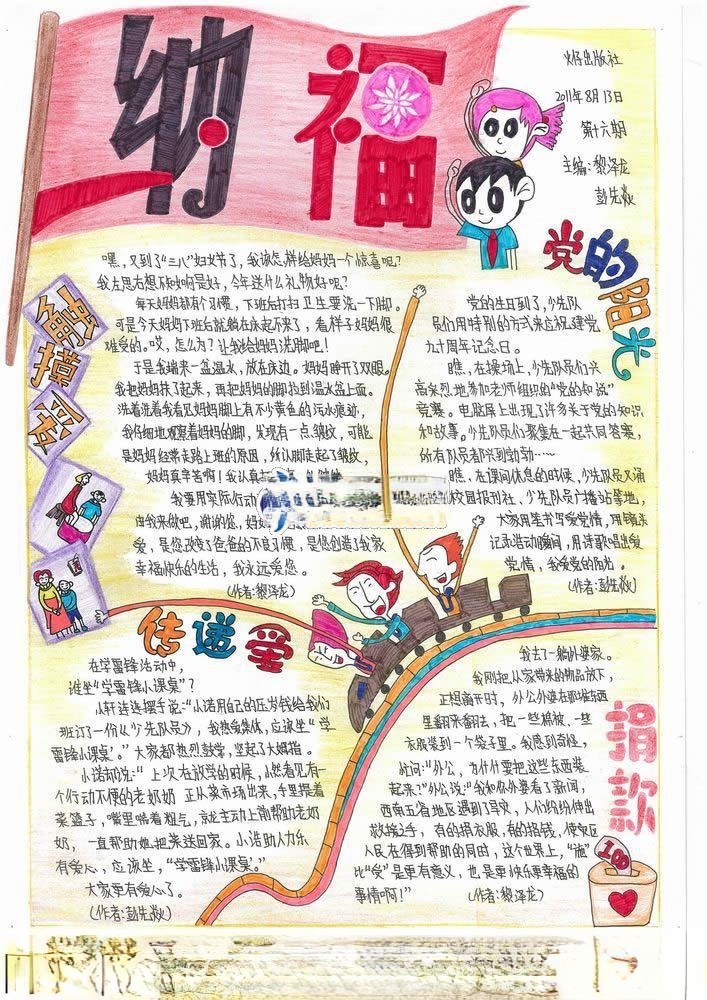 纳福
出版社
2011年8月13日
第十六期
主编:黎泽龙
彭先焱
触摸爱
嘿,又到了“三八”妇女节了,我该怎样给妈妈一个惊喜呢?
我左思右想不知如何是好,今年送什么礼物好呢?
每天妈妈都有个习惯,下班后打扫卫生要洗一下脚。
可是今天妈妈下班后就躺在床起不来了,看样子妈妈很
难受的。哎,怎么办?让我给妈妈洗脚吧!
于是我端来一盆温水,放在床边。妈妈睁开了双眼。
我把妈妈扶了起来,再把妈妈的脚抬到温水盆上面。
洗着洗着我看见妈妈脚上有不少黄色的污水痕迹,
我仔细地观察着妈妈的脚,发现有一点皱纹,可能
是妈妈经常走路上班的原因,所认脚走起了皱纹,
妈妈真辛苦啊!我认真
我要用实际行动
由我来做吧,谢谢您,妈妈
爱,是您改变了爸爸的不良习惯,是您创造了我家
幸福快乐的生活,我永远爱您。
(作者:黎泽龙)
党的阳光
党的生日到了,少先队
员们用特别的方式来庆祝建党
九十周年纪念日。
瞧,在操场上,少先队员们兴
高采烈地参加老师组织的“党的知识”
竞赛。电脑屏上出现了许多关于党的知识
和故事。少先队员们聚集在一起共同答赛,
所有队员都兴致勃勃……
瞧,在课间休息的时候,少先队员又涌
校园报刊社,少先队员广播站等地,
大家用笔书写爱党情,用镜头
记录活动瞬间,用诗歌唱出爱
党情,我爱党的阳光。
(作者:彭先焱)
传递爱
在学雷锋活动中,
谁坐“学雷锋小课桌”?
轩连连摆手说:“小诺用自己的压岁钱给我们
班订了一份《少先队员》,我想爱集体,应该坐“学
雷锋小课桌”。”大家都热烈鼓掌,竖起了大姆指。
小诺却说:“上次在放学的时候,小然看见有一
个行动不便的老奶奶 正从菜市场出来,手里提着
菜篮子,嘴里喘着粗气,就主动上前帮助老奶
奶,一直帮助她把菜送回家。小诺助人为乐
有爱心,应该坐,“学雷锋小课桌。”
大家更有爱心了。
(作者:彭先焱)
捐款
我去了一躺外婆家。
我刚把从家带来的物品放下,
正想离开时,外公外婆在那堆东西
里翻来翻去,把一些棉被、一些
衣服装到一个袋子里。我感到奇怪,
忙问:“外公,为什什要把这些东西装
起来?”外公说:“我和你外婆看了新闻,
西南五省地区遇到了旱灾,人们纷纷伸出
救援之手,有的捐衣服,有的捐钱,使灾区
人民在得到帮助的同时,这个世界上,“施”
比“受”是更有意义,也是更快乐更幸福的
事情啊!”
(作者:黎泽龙)
100